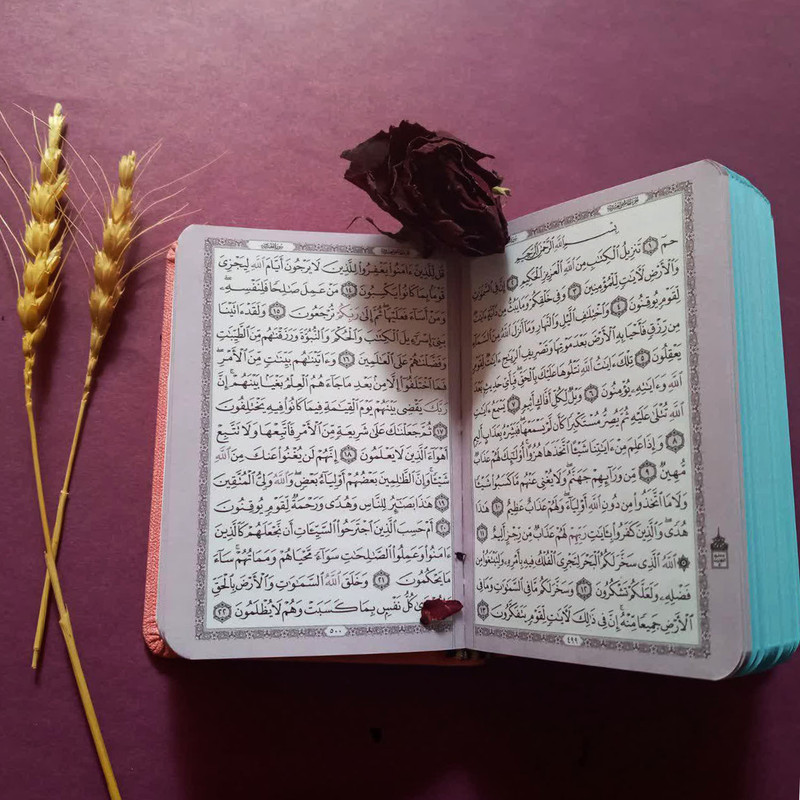 بِسْمِ ٱللَّهِ ٱلرَّحْمَٰنِ ٱلرَّحِيمِ
حمٓ ١ تَنزِيلُ ٱلْكِتَٰبِ مِنَ ٱللَّهِ ٱلْعَزِيزِ ٱلْحَكِيمِ ٢ إِنَّ فِى ٱلسَّمَٰوَٰتِ
وَٱلْأَرْضِ لَءَايَٰتٍ لِّلْمُؤْمِنِينَ ٣ وَفِى خَلْقِكُمْ وَمَا يَبُثُّ مِن دَآبَّةٍ ءَايَٰتٌ
لِّقَوْمٍ يُوقِنُونَ ٤ وَٱخْتِلَٰفِ ٱلَّيْلِ وَٱلنَّهَارِ وَمَآ أَنزَلَ ٱللَّهُ مِنَ ٱلسَّمَآءِ
مِن رِّزْقٍ فَأَحْيَا بِهِ ٱلْأَرْضَ بَعْدَ مَوْتِهَا وَتَصْرِيفِ ٱلرِّيَٰحِ ءَايَٰتٌ لِّقَوْمٍ
يَعْقِلُونَ ٥ تِلْكَ ءَايَٰتُ ٱللَّهِ نَتْلُوهَا عَلَيْكَ بِٱلْحَقِّ فَبِأَىِّ حَدِيثٍ بَعْدَ
ٱللَّهِ وَءَايَٰتِهِۦ يُؤْمِنُونَ ٦ وَيْلٌ لِّكُلِّ أَفَّاكٍ أَثِيمٍ ٧ يَسْمَعُ ءَايَٰتِ
ٱللَّهِ تُتْلَىٰ عَلَيْهِ ثُمَّ يُصِرُّ مُسْتَكْبِرًا كَأَن لَّمْ يَسْمَعْهَا فَبَشِّرْهُ بِعَذَابٍ أَلِيمٍ
٨ وَإِذَا عَلِمَ مِنْ ءَايَٰتِنَا شَيْـًٔا ٱتَّخَذَهَا هُزُوًا أُو۟لَٰٓئِكَ لَهُمْ عَذَابٌ
مُّهِينٌ ٩ مِّن وَرَآئِهِمْ جَهَنَّمُ وَلَا يُغْنِى عَنْهُم مَّا كَسَبُوا۟ شَيْـًٔا
وَلَا مَا ٱتَّخَذُوا۟ مِن دُونِ ٱللَّهِ أَوْلِيَآءَ وَلَهُمْ عَذَابٌ عَظِيمٌ ١٠ هَٰذَا
هُدًى وَٱلَّذِينَ كَفَرُوا۟ بِـَٔايَٰتِ رَبِّهِمْ لَهُمْ عَذَابٌ مِّن رِّجْزٍ أَلِيمٌ ١١
۞ ٱللَّهُ ٱلَّذِى سَخَّرَ لَكُمُ ٱلْبَحْرَ لِتَجْرِىَ ٱلْفُلْكُ فِيهِ بِأَمْرِهِۦ وَلِتَبْتَغُوا۟ مِن
فَضْلِهِۦ وَلَعَلَّكُمْ تَشْكُرُونَ ١٢ وَسَخَّرَ لَكُم مَّا فِى ٱلسَّمَٰوَٰتِ وَمَا فِى
ٱلْأَرْضِ جَمِيعًا مِّنْهُ إِنَّ فِى ذَٰلِكَ لَءَايَٰتٍ لِّقَوْمٍ يَتَفَكَّرُونَ ١٣
٤٩٩
قُل لِّلَّذِينَ ءَامَنُوا۟ يَغْفِرُوا۟ لِلَّذِينَ لَا يَرْجُونَ أَيَّامَ ٱللَّهِ لِيَجْزِىَ
قَوْمًۢا بِمَا كَانُوا۟ يَكْسِبُونَ ١٤ مَنْ عَمِلَ صَٰلِحًا فَلِنَفْسِهِۦ
وَمَنْ أَسَآءَ فَعَلَيْهَا ثُمَّ إِلَىٰ رَبِّكُمْ تُرْجَعُونَ ١٥ وَلَقَدْ ءَاتَيْنَا
بَنِىٓ إِسْرَٰٓءِيلَ ٱلْكِتَٰبَ وَٱلْحُكْمَ وَٱلنُّبُوَّةَ وَرَزَقْنَٰهُم مِّنَ ٱلطَّيِّبَٰتِ
وَفَضَّلْنَٰهُمْ عَلَى ٱلْعَٰلَمِينَ ١٦ وَءَاتَيْنَٰهُم بَيِّنَٰتٍ مِّنَ ٱلْأَمْرِ
فَمَا ٱخْتَلَفُوٓا۟ إِلَّا مِنۢ بَعْدِ مَا جَآءَهُمُ ٱلْعِلْمُ بَغْيًۢا بَيْنَهُمْ إِنَّ
رَبَّكَ يَقْضِى بَيْنَهُمْ يَوْمَ ٱلْقِيَٰمَةِ فِيمَا كَانُوا۟ فِيهِ يَخْتَلِفُونَ
١٧ ثُمَّ جَعَلْنَٰكَ عَلَىٰ شَرِيعَةٍ مِّنَ ٱلْأَمْرِ فَٱتَّبِعْهَا وَلَا تَتَّبِعْ
أَهْوَآءَ ٱلَّذِينَ لَا يَعْلَمُونَ ١٨ إِنَّهُمْ لَن يُغْنُوا۟ عَنكَ مِنَ ٱللَّهِ
شَيْـًٔا وَإِنَّ ٱلظَّٰلِمِينَ بَعْضُهُمْ أَوْلِيَآءُ بَعْضٍ وَٱللَّهُ وَلِىُّ ٱلْمُتَّقِينَ
١٩ هَٰذَا بَصَٰٓئِرُ لِلنَّاسِ وَهُدًى وَرَحْمَةٌ لِّقَوْمٍ يُوقِنُونَ
٢٠ أَمْ حَسِبَ ٱلَّذِينَ ٱجْتَرَحُوا۟ ٱلسَّيِّـَٔاتِ أَن نَّجْعَلَهُمْ كَٱلَّذِينَ
ءَامَنُوا۟ وَعَمِلُوا۟ ٱلصَّٰلِحَٰتِ سَوَآءً مَّحْيَاهُمْ وَمَمَاتُهُمْ سَآءَ
مَا يَحْكُمُونَ ٢١ وَخَلَقَ ٱللَّهُ ٱلسَّمَٰوَٰتِ وَٱلْأَرْضَ بِٱلْحَقِّ
كُلُّ نَفْسٍۭ بِمَا كَسَبَتْ وَهُمْ لَا يُظْلَمُونَ ٢٢
٥٠٠